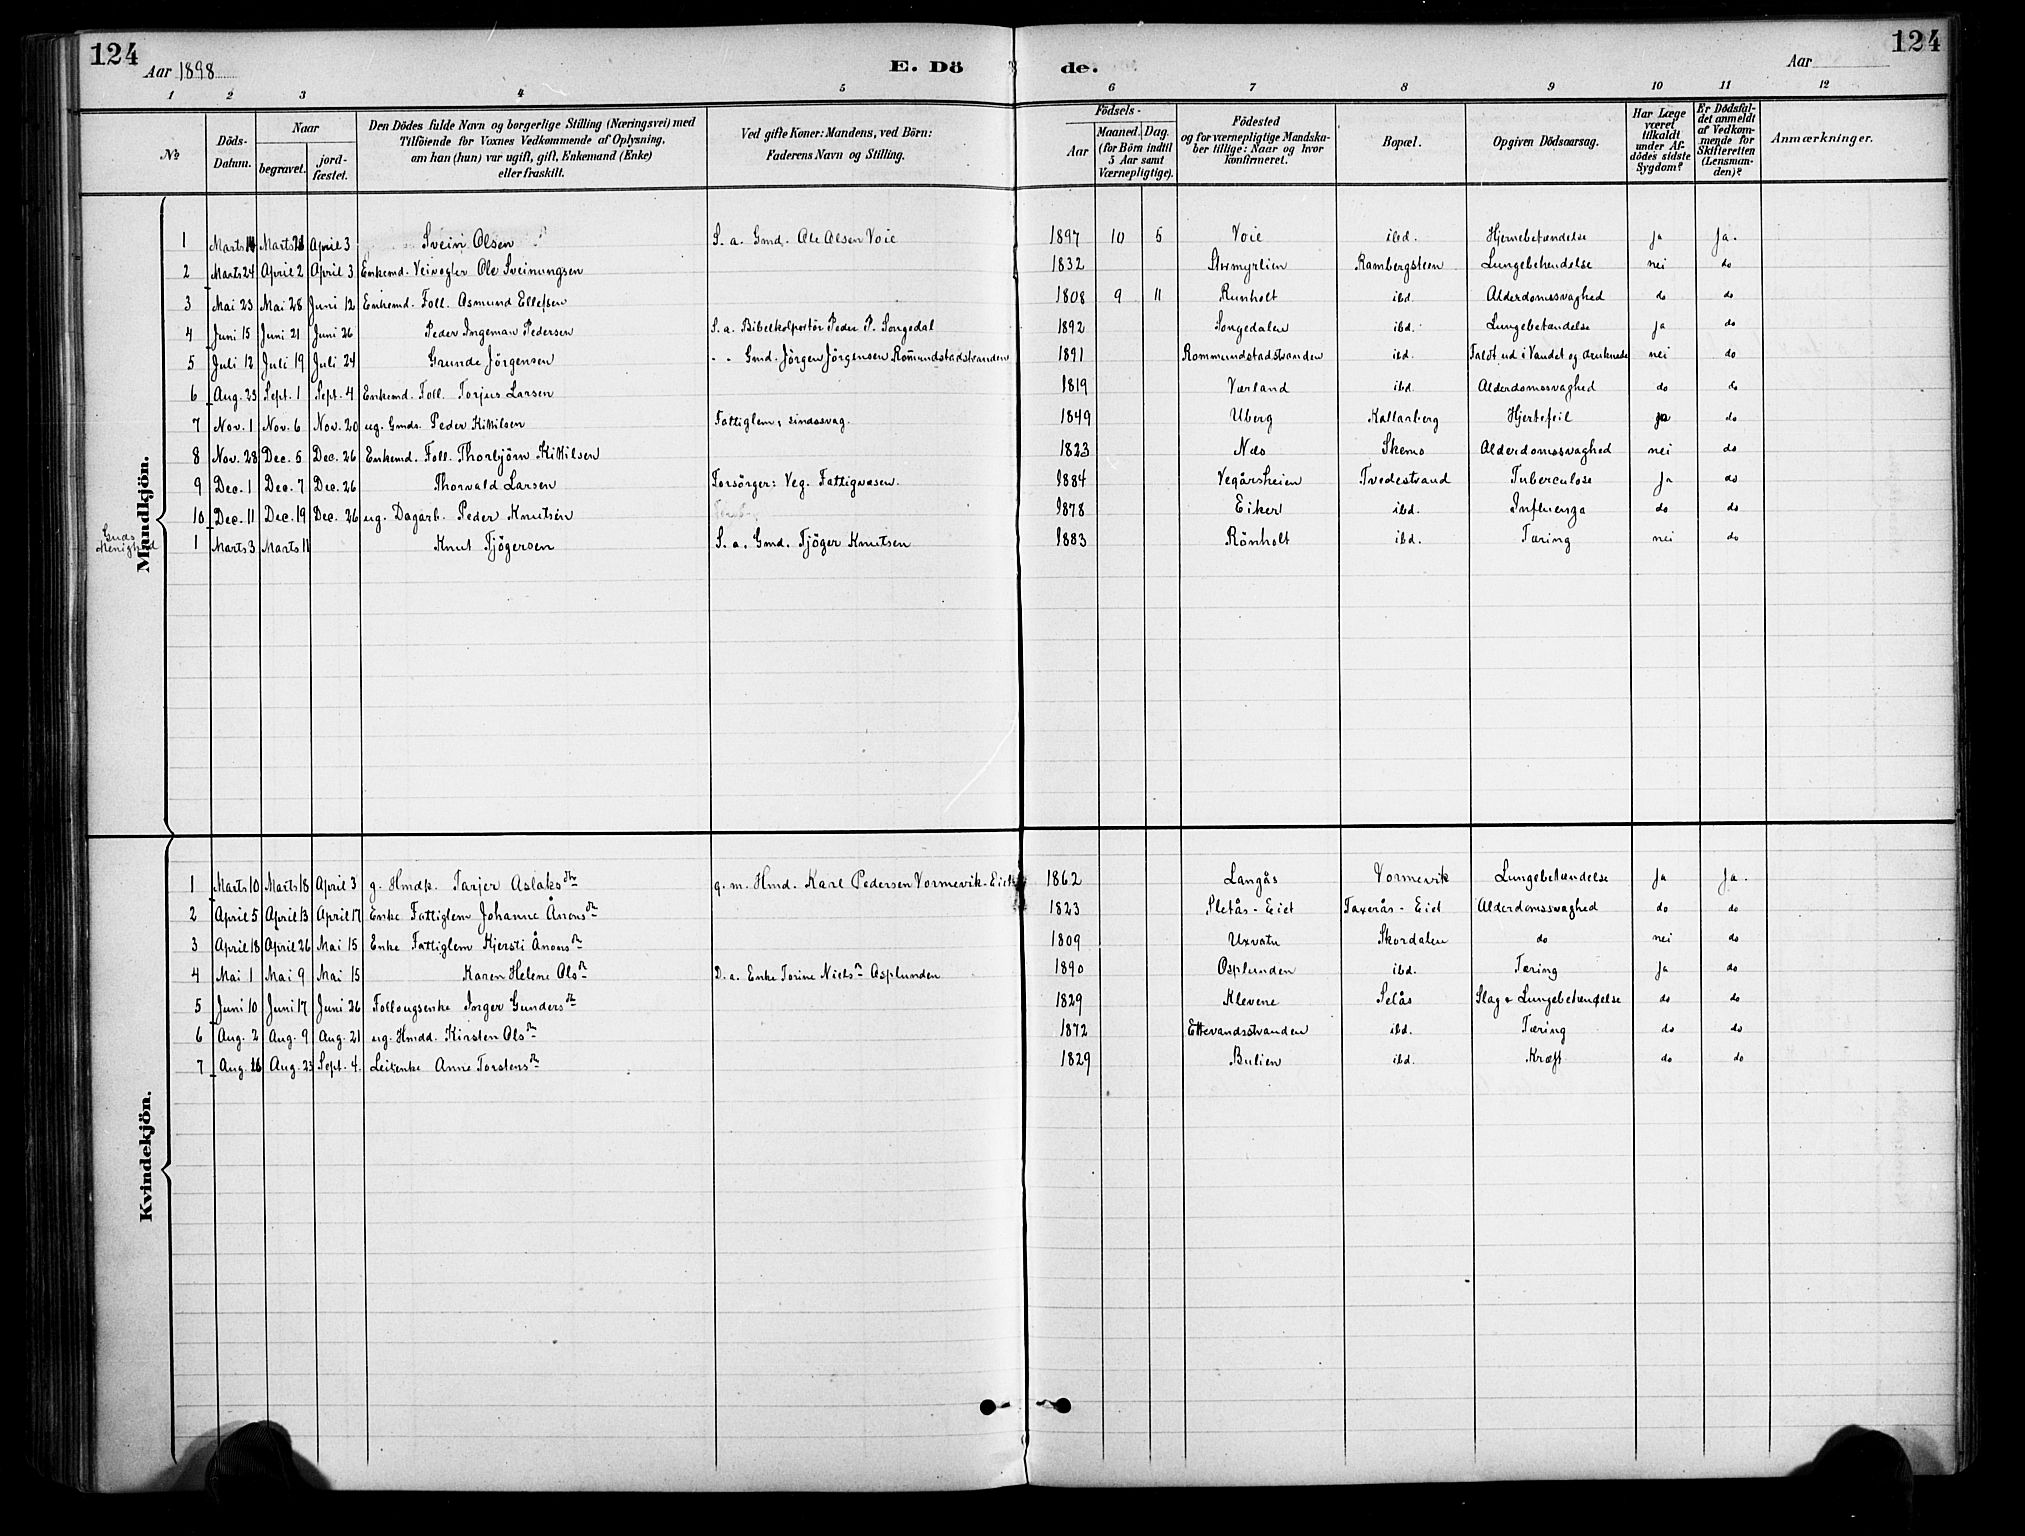 124
Aar 1898
E. Dö
de.
Aar
124
1 2 3 4 5 6 7 8 9 10 11 12
No
Döds-Datum.
Naar
begravet.
jord-fæstet.
Den Dödes fulde Navn og borgerlige Stilling (Næringsvei) med
Tilföiende for Voxnes Vedkommende af Oplysning,
om han (hun) var ugift, gift, Enkemand (Enke)
eller fraskilt.
Ved gifte Koner: Mandens, ved Börn:
Faderens Navn og Stilling.
Födsels-
Aar
Maaned. Dag.
(for Börn indtil
5 Aar samt
Værnepligtige).
Födested
og for værnepligtige Mandska-
ber tillige: Naar og hvor
konfirmeret.
Bopæl.
Opgiven Dödsaarsag.
Har Læge
været
tilkaldt
under Af-
dödes sidste
Sygdom?
Er Dödsfal-
det anmeldt
af Vedkom-
mende for
Skifteretten
(Lensman-
den)?
Anmærkninger.
Mandkjön.
1 Marts 14 Marts 23 April 3 Svein Olsen S. a. Gmd. Ole Olsen Voie 1897 10 5 Voie ibd. Hjernebetændelse ja ja.
2 Marts 24 April 2 April 3 Enkemd. Veivogter Ole Sveinungsen 1832 Stermyrlien Rambergsteen Lungebetændelse nei do
3 Mai 23 Mai 28 Juni 12 Enkemd. Foll. Asmund Ellefsen 1808 9 11 Runholt ibd. Alderdomssvaghed do do
4 Juni 15 Juni 21 Juni 26 Peder Ingeman Pedersen S. a. Bibelkolportör Peder P. Songedal 1892 Songedalen ibd. Lungebetændelse ja do
5 Juli 12 Juli 19 Juli 24 Grunde Jörgensen - - Gmd. Jörgen Jörgensen Rommundstadstranden 1891 Rommundstadstranden ibd. Faldt ud i Vandet og druknede nei do
6 Aug. 23 Sept. 1 Sept. 4 Enkemd. Foll. Torjus Larsen 1819 Værland ibd. Alderdomssvaghed do do
7 Nov. 1 Nov. 6 Nov. 20 ug. Gmds. Peder Kittilsen Fattiglem, sindssvag. 1849 Uberg Kallarberg Hjertefeil ja do
8 Nov. 28 Dec. 5 Dec. 26 Enkemd. Foll. Thorbjörn Kittilsen 1823 Næs Skemo Alderdomssvaghed nei do
9 Dec. 1 Dec. 7 Dec. 26 Thorvald Larsen Forsörger: Veg. Fattigvæsen. 1884 Vegårsheien Tvedestrand Tuberculose ja do
10 Dec. 11 Dec. 19 Dec. 26 ug. Dagarb. Peder Knutsen 1878 Eiker ibd. Influenza do do
Guds Menighed
1 Marts 3 Marts 11 Knut Tjögersen S. a. Gmd. Tjöger Knutsen 1883 Rönholt ibd. Tæring nei do
Kvindekjön.
1 Marts 10 Marts 18 April 3 g. Hmdk. Tarjer Aslaksdtr g. m. Hmd. Karl Pedersen Vormevik-Eiet 1862 Langås Vormevik Lungebetændelse ja ja.
2 April 5 April 13 April 17 Enke Fattiglem Johanne Ånonsdr 1823 Sletås-Eiet Taxerås-Eiet Alderdomssvaghed do do
3 April 18 April 26 Mai 15 Enke Fattiglem Kjersti Ånonsdr 1809 Uxvatn Skordalen do nei do
4 Mai 1 Mai 9 Mai 15 Karen Helene Olsdr D. a. Enke Torine Nielsdr Osplunden 1890 Osplunden ibd. Tæring ja do
5 Juni 10 Juni 17 Juni 26 Follougsenke Inger Gundersdtr 1829 Klevene Selås Slag & Lungebetændelse do do
6 Aug. 2 Aug. 9 Aug. 21 ug. Hmdd. Kirsten Olsdr 1872 Ettevandsstranden ibd. Tæring do do
7 Aug. 16 Aug. 23 Sept. 4. Leienke Anne Torstensdr 1829 Bulien ibd. Kræft do do